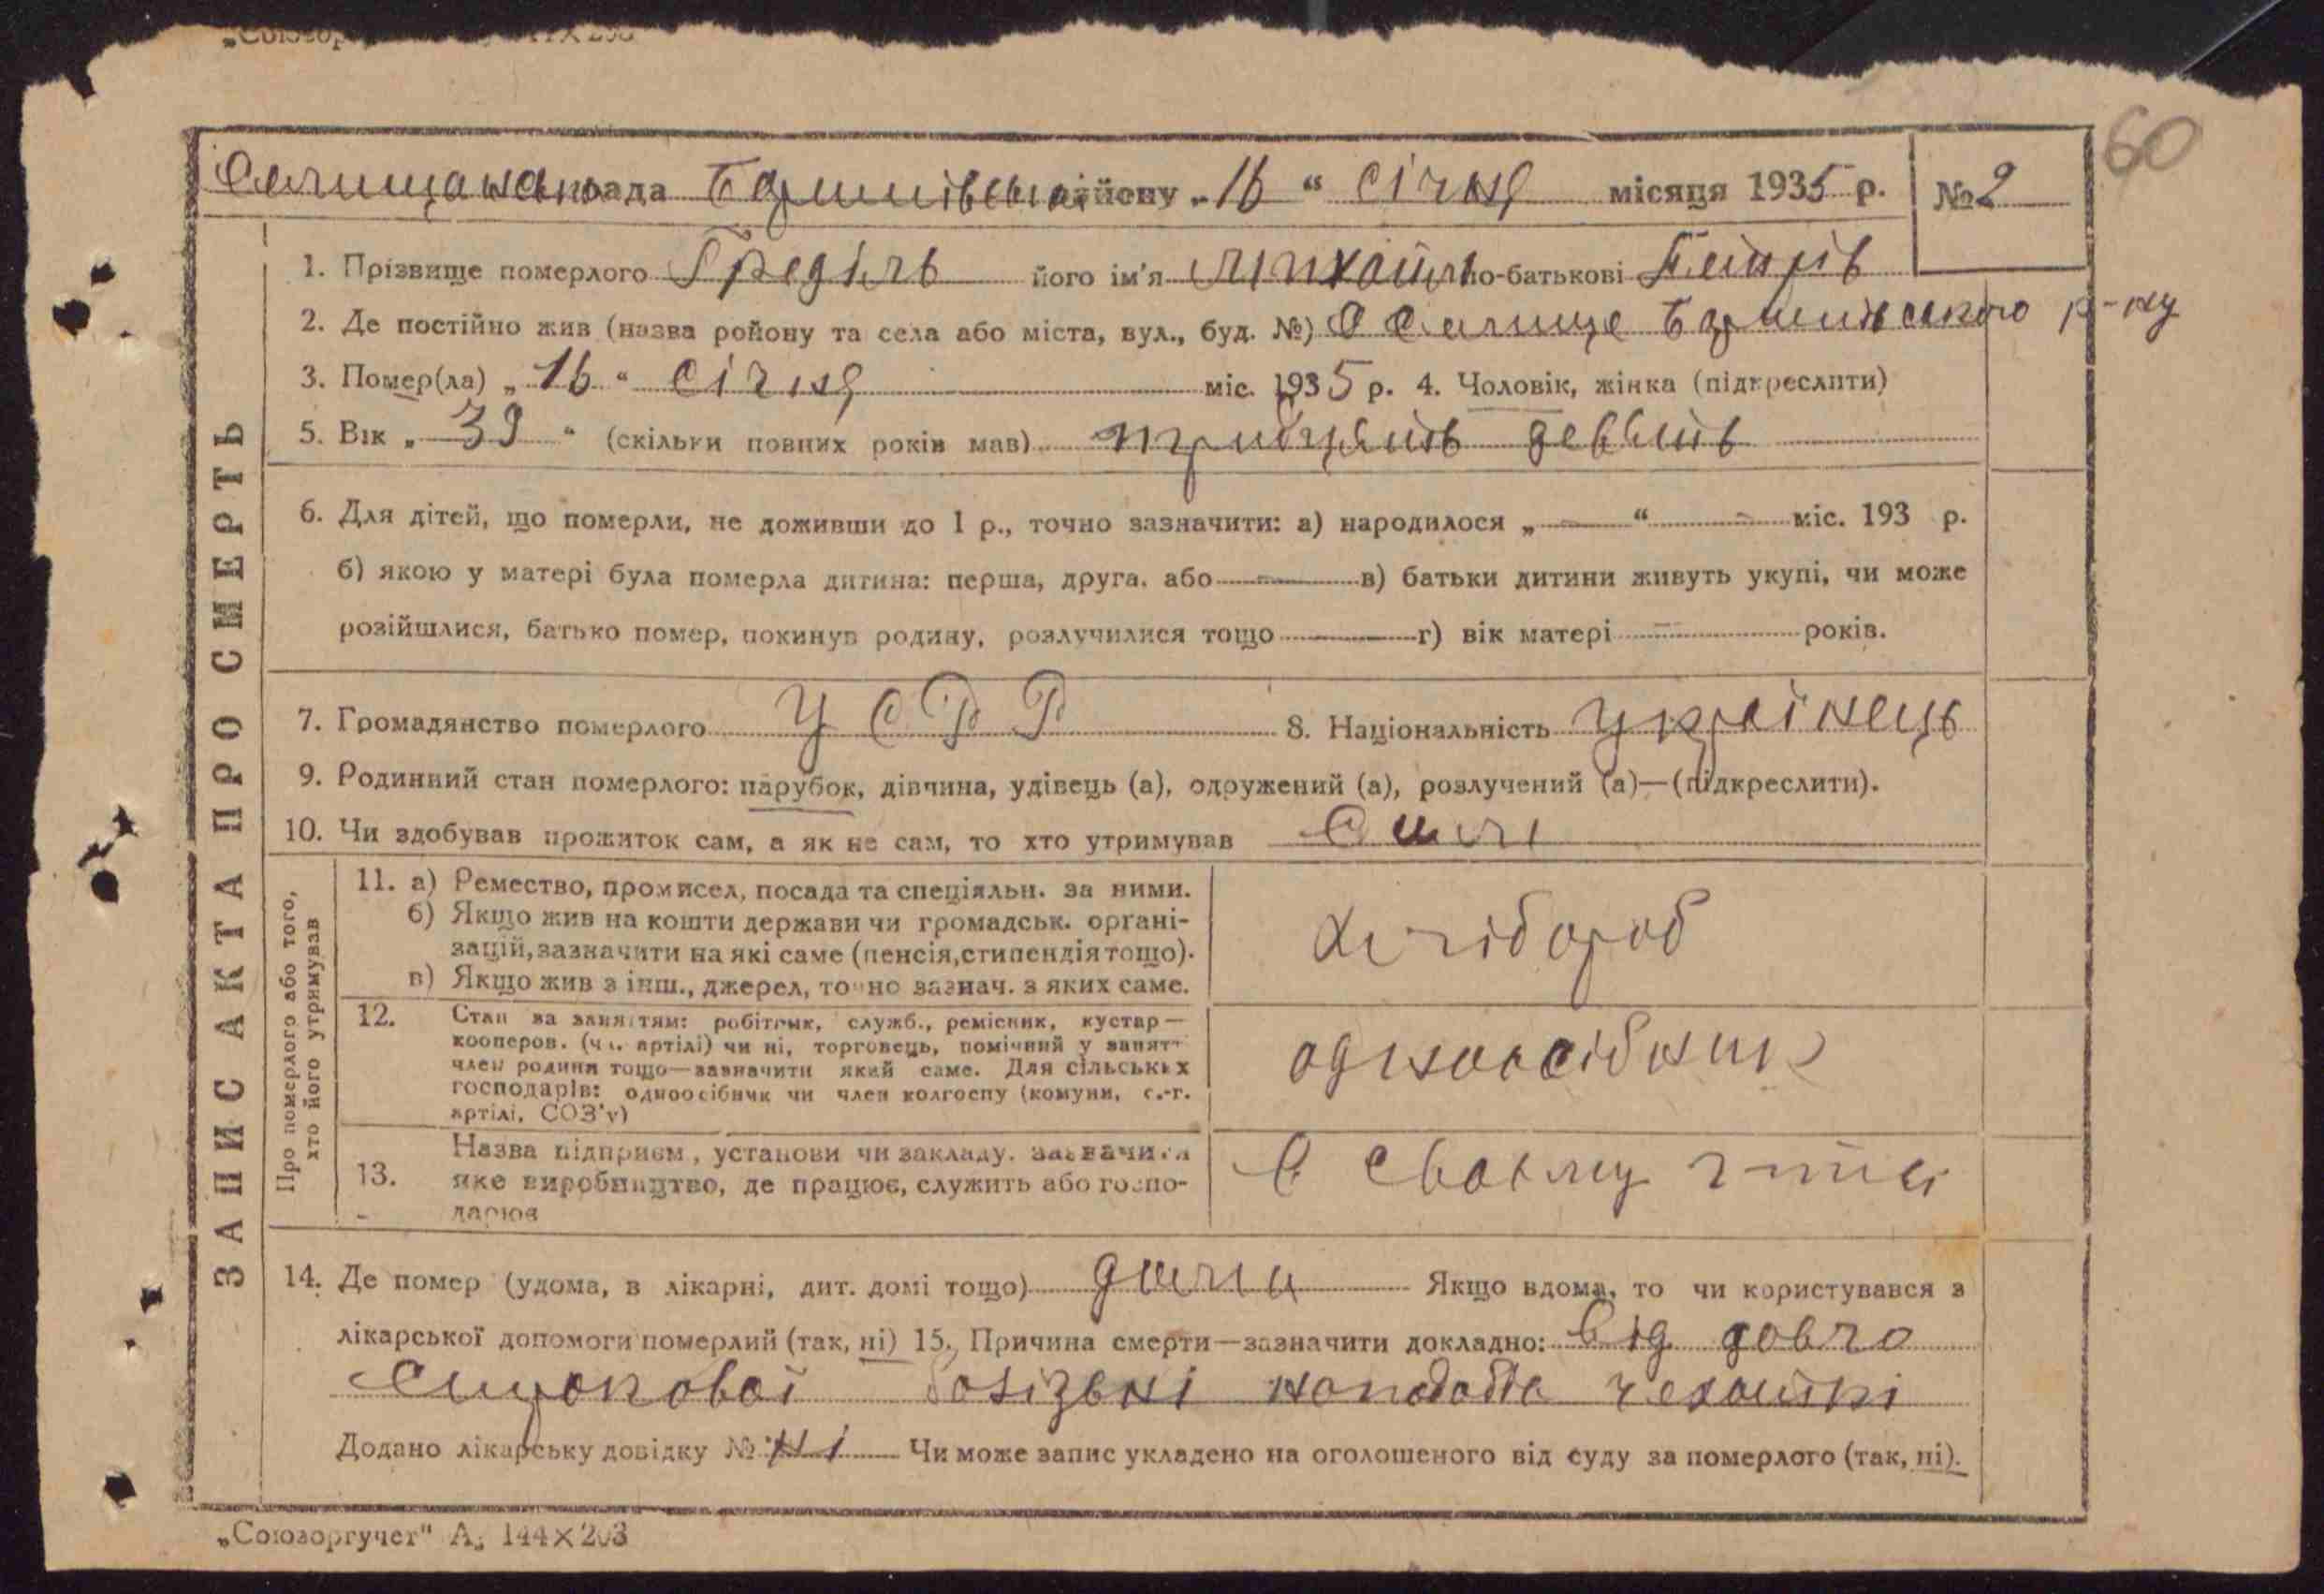 60
рада району „16“ січня місяця 1935 р. №2
1. Прізвище померлого Греділь його ім'я Михайло по-батькові Петрів
2. Де постійно жив (назва ройону та села або міста, вул., буд. №) с Селище р-ну
3. Помер(ла) „16“ січня міс. 1935 р. 4. Чоловік, жінка (підкреслити)
5. Вік „39“ (скільки повних років мав) тридцять девять
6. Для дітей, що померли, не доживши до 1 р., точно зазначити: а) народилося „—“ — міс. 193 р.
б) якою у матері була померла дитина: перша, друга, або — в) батьки дитини живуть укупі, чи може
розійшлися, батько помер, покинув родину, розлучилися тощо — г) вік матері — років.
7. Громадянство померлого УСРР 8. Національність українець
9. Родинний стан померлого: парубок, дівчина, удівець (а), одружений (а), розлучений (а)—(підкреслити).
10. Чи здобував прожиток сам, а як не сам, то хто утримував Сам
ЗАПИС АКТА ПРО СМЕРТЬ
Про померлого або того, хто його утримував
11. а) Ремество, промисел, посада та спеціяльн. за ними.
б) Якщо жив на кошти держави чи громадськ. органі-
зацій, зазначити на які саме (пенсія, стипендія тощо).
в) Якщо жив з інш., джерел, точно зазнач. з яких саме.
хлібороб
12. Стан за заняттям: робітник, служб., ремісник, кустар—
кооперов. (чл. артілі) чи ні, торговець, помічний у занятт
член родини тощо—зазначити який саме. Для сільських
господарів: одноосібник чи член колгоспу (комуни, с.-г.
артілі, СОЗ'у)
одноосібник
13. Назва підприєм, установи чи закладу. зазначити
яке виробництво, де працює, служить або госпо-
дарює
в своєму
14. Де помер (удома, в лікарні, дит. домі тощо) дома Якщо вдома, то чи користувався з
лікарської допомоги померлий (так, ні) 15. Причина смерти—зазначити докладно: від довго
строкової болізьні
Додано лікарську довідку № ні Чи може запис укладено на оголошеного від суду за померлого (так, ні).
„Союзоргучет" А5 144×203